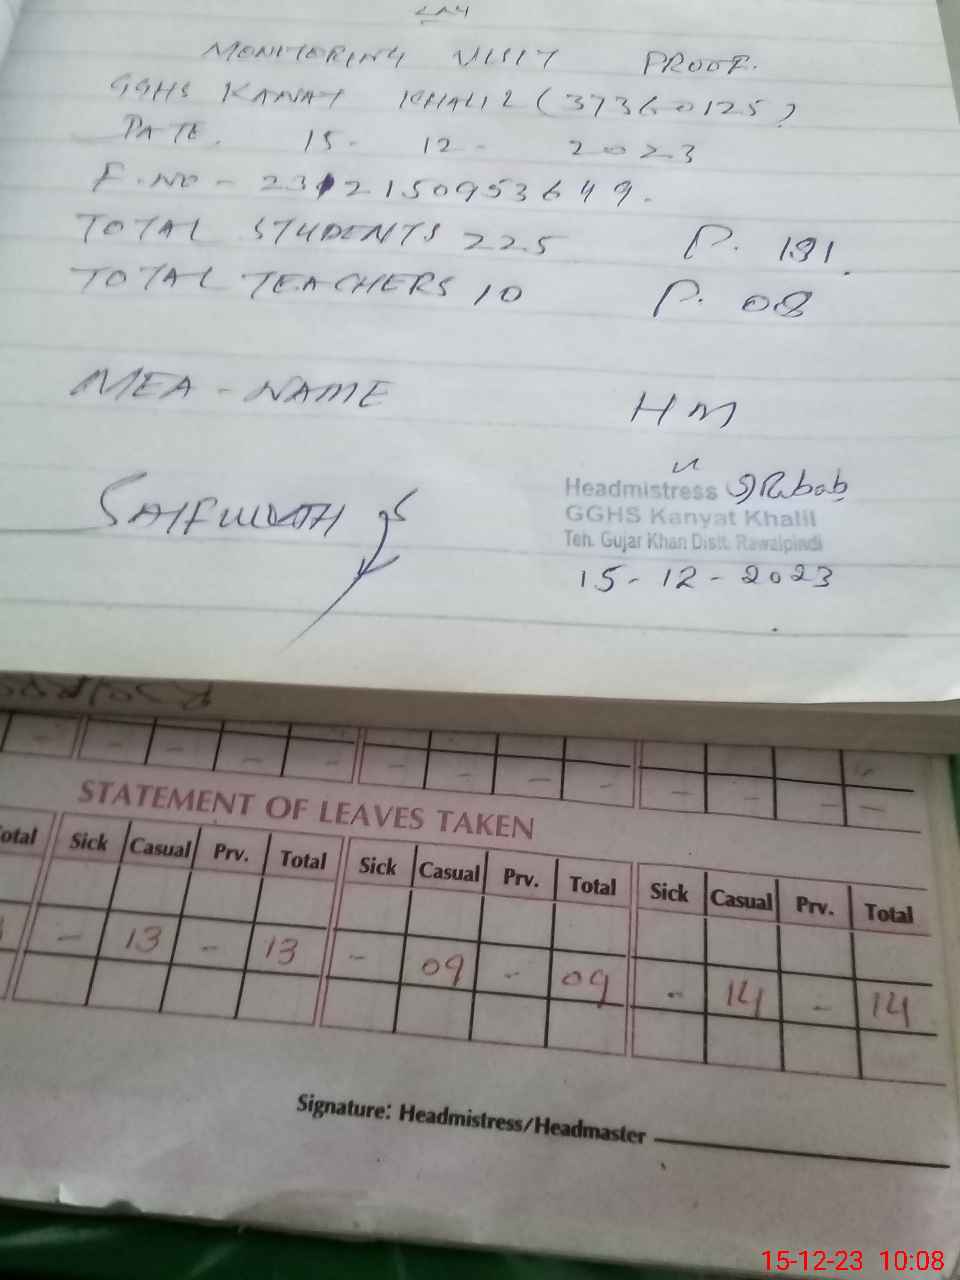 MONITORING VISIT PROOF.
GGHS KANAT KHALIL (37360125)
DATE. 15- 12- 2023
F.NO - 2312150953649.
TOTAL STUDENTS 225 P. 191.
TOTAL TEACHERS 10 P. 08
MEA - NAME
HM
SAIFULLAH
Headmistress Rubab
GGHS Kanyat Khalil
Teh. Gujar Khan Distt. Rawalpindi
15-12-2023
STATEMENT OF LEAVES TAKEN
Total Sick Casual Prv. Total Sick Casual Prv. Total Sick Casual Prv. Total
- 13 - 13 - 09 - 09 - 14 - 14
Signature: Headmistress/Headmaster
15-12-23 10:08